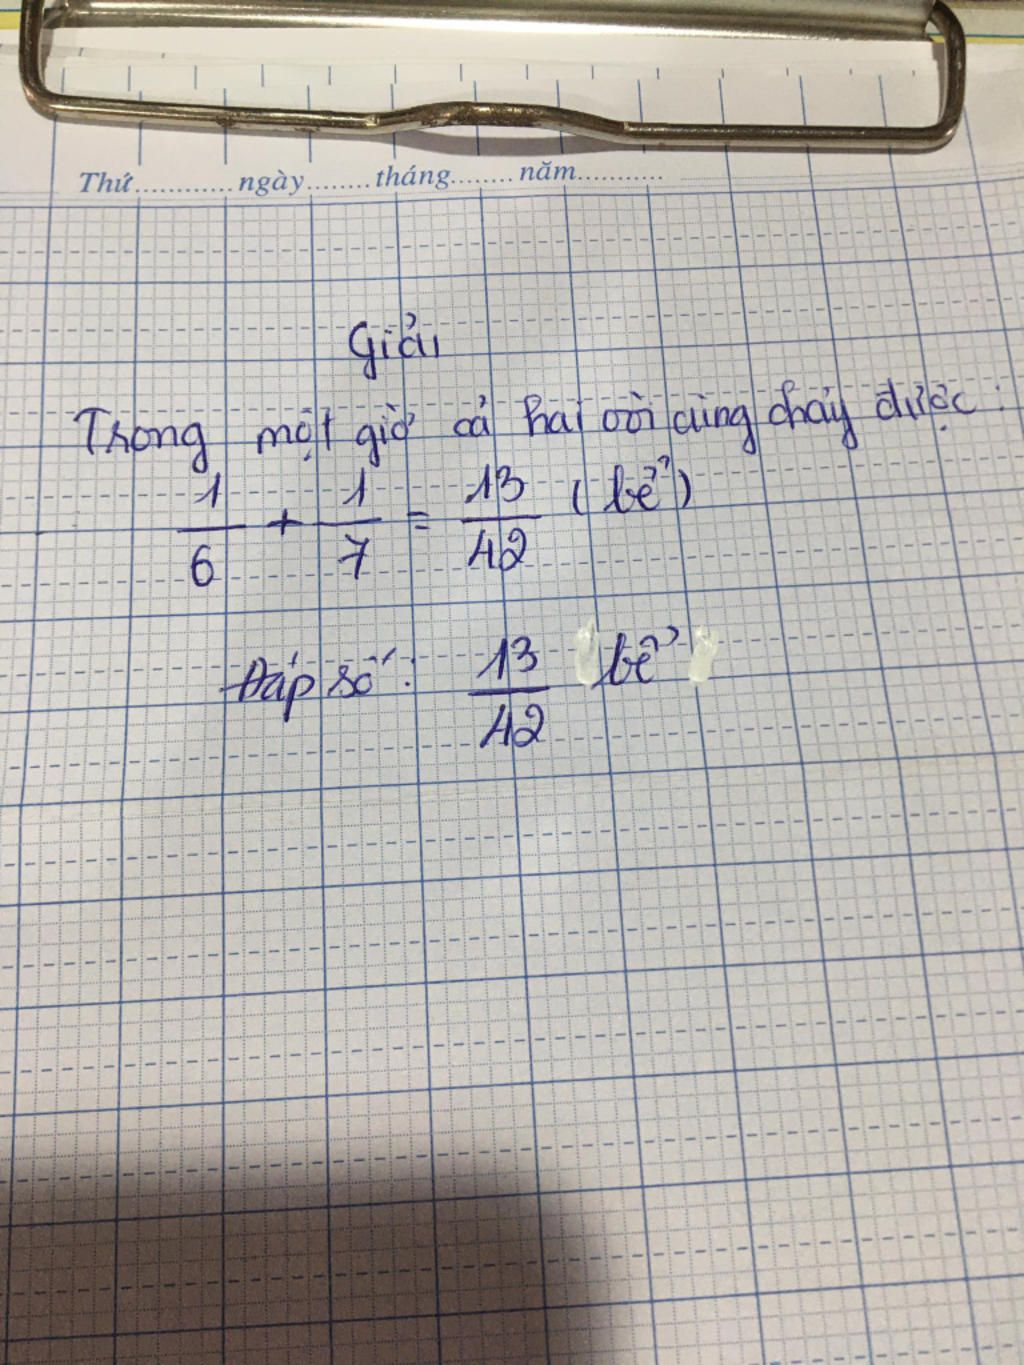 Thứ............ngày........tháng........năm...........
Giải
Trong một giờ cả hai vòi cùng chảy được:
1/6 + 1/7 = 13/42 (bể)
Đáp số: 13/42 bể